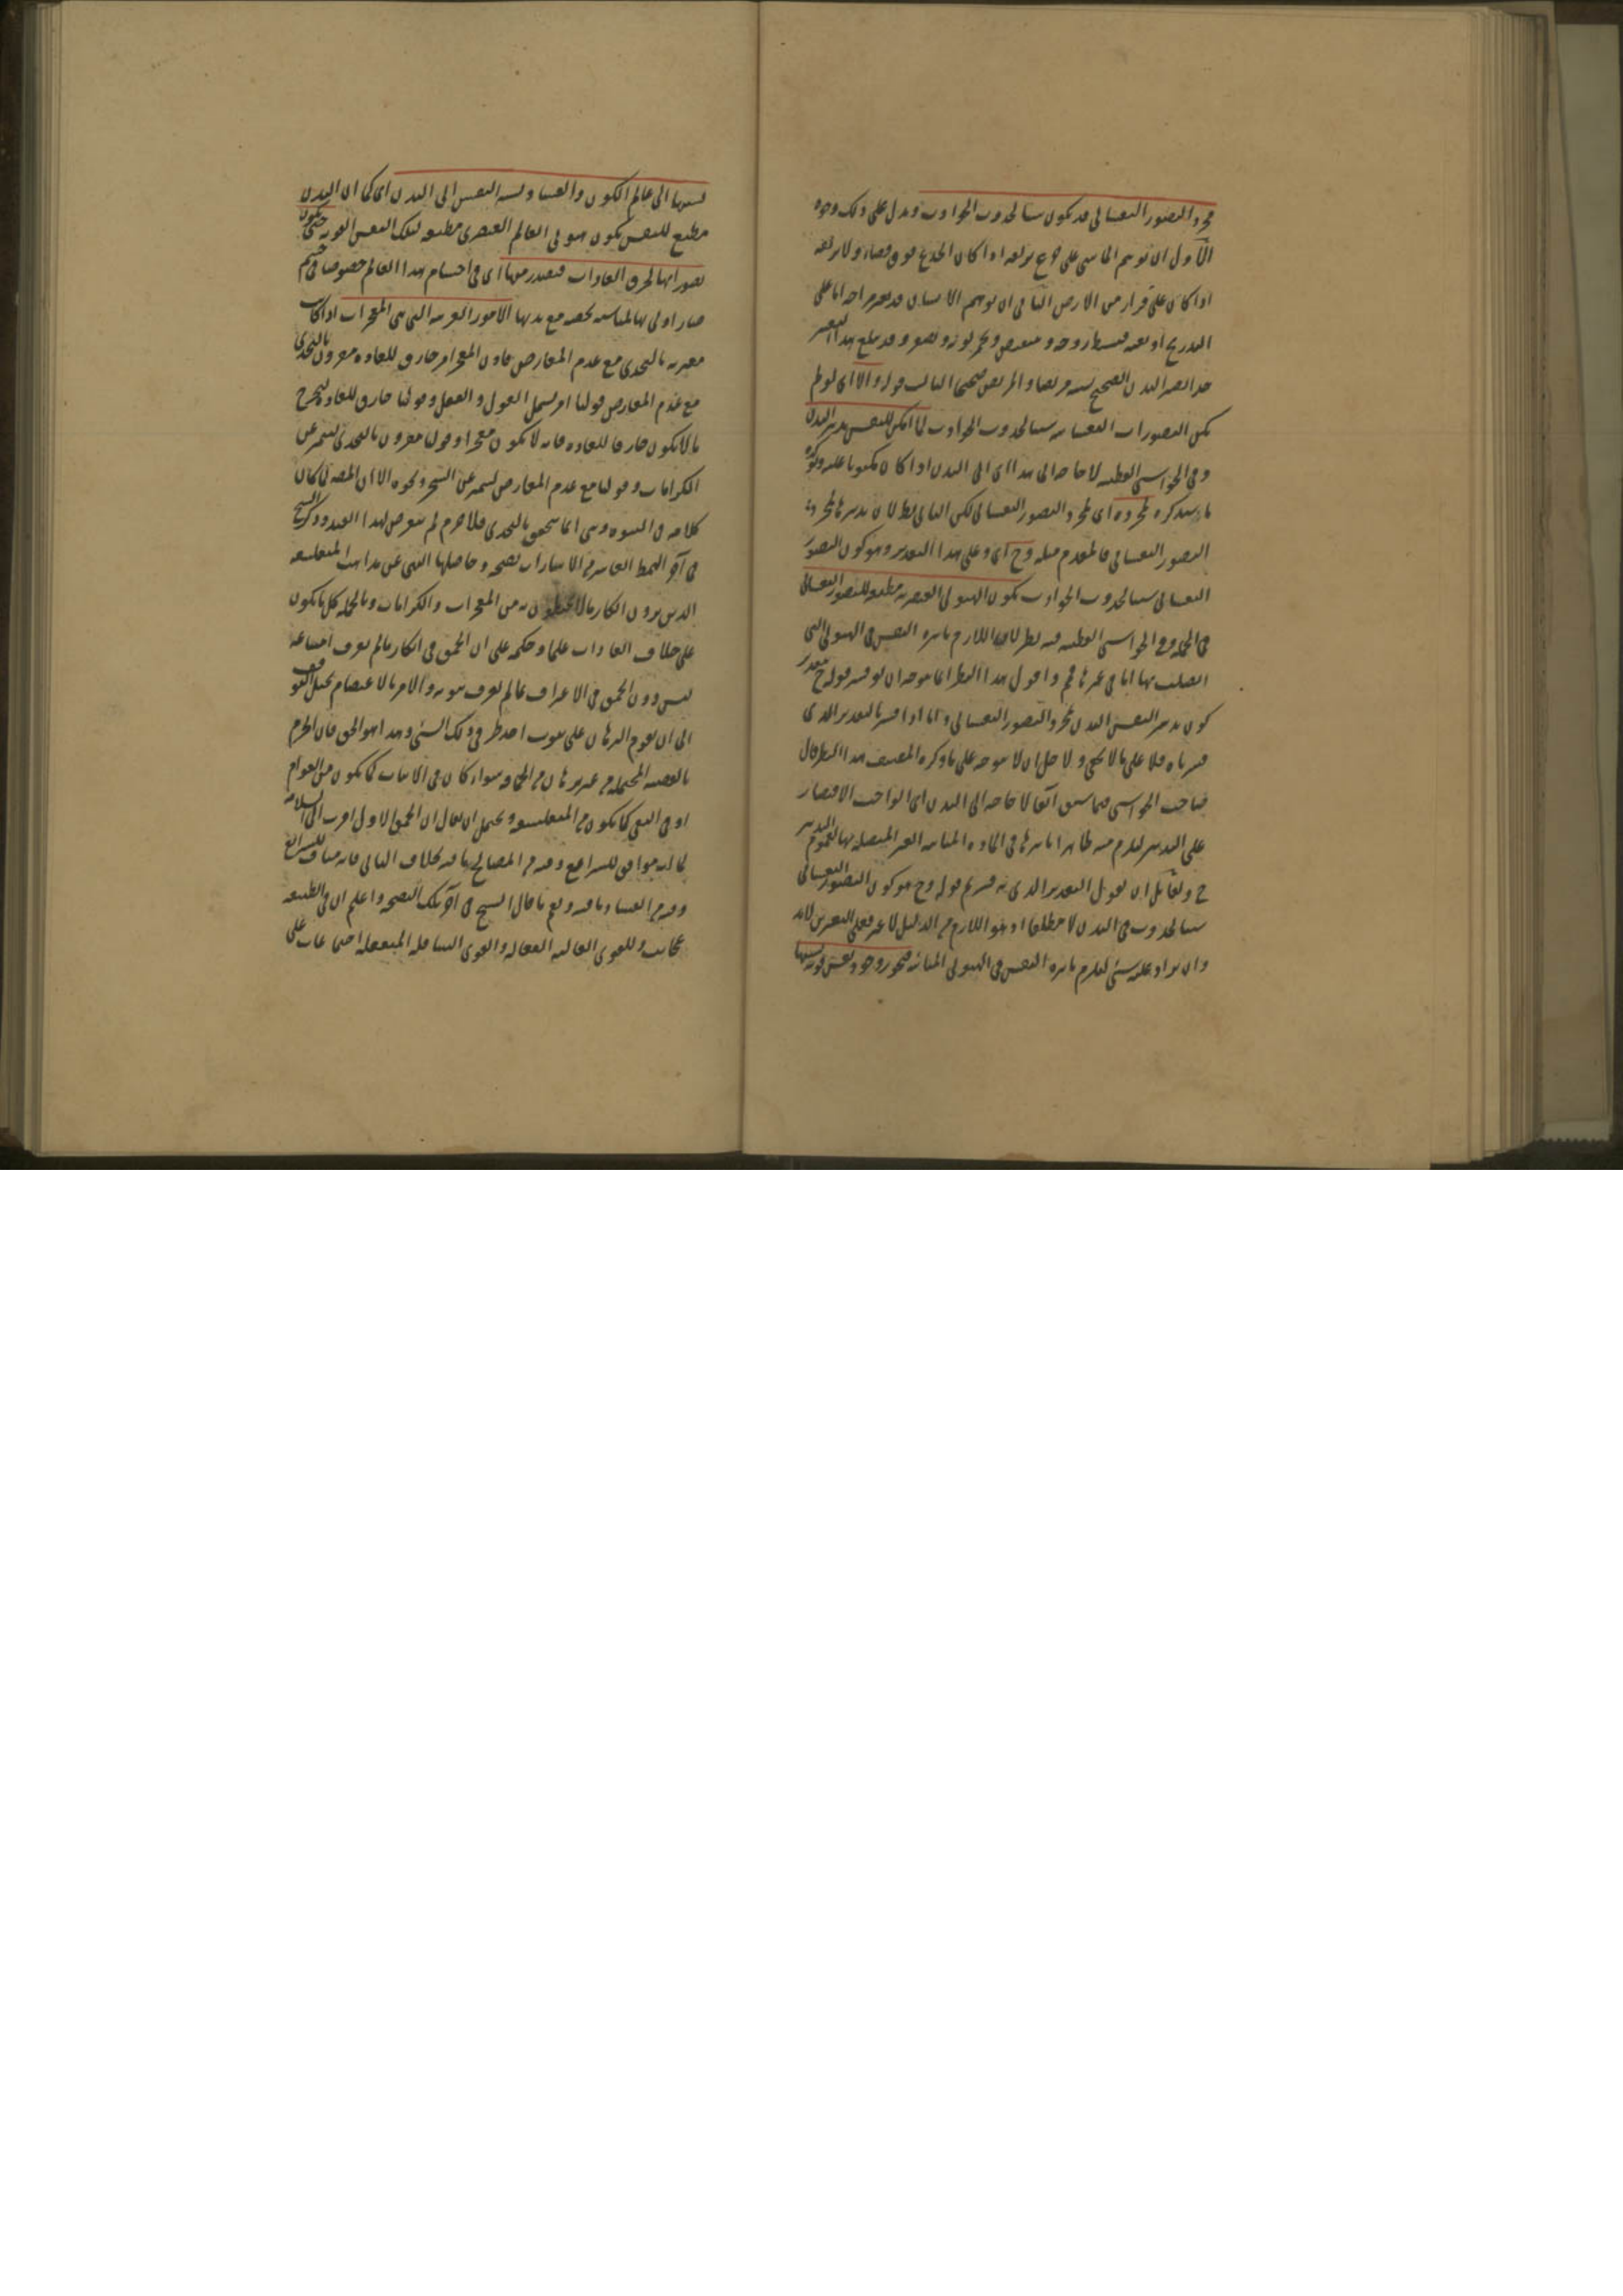 مجرد التصور النفساني قد يكون سببا لحدوث الحوادث ويدل على ذلك وجوه
الأول ان توهم الماشي على جذع يزلقه اذا كان الجذع فوق فضاء ولا يزلقه
اذا كان على قرار من الارض الثاني ان توهم الانسان قد يغير مزاجه اما على
التدريج او بغتة فينبسط روحه وينقبض ويحمر لونه ويصفر وقد يبلغ هذا التغير
حدا يصير البدن الصحيح بسببه مريضا والمريض صحيحا الثالث قوله والا اى لو لم
يكن التصورات النفسانية سببا لحدوث الحوادث لما امكن للنفس تدبير البدن
وفي الحواشي القطبية لا حاجة الى هذا اى الى البدن اذا كان مكتوبا عليه
ما سيذكره مجرده اى مجرد التصور النفساني لكن التالي بط لان تدبيرها بمجرد
التصور النفساني فالمقدم مثله وح اى وعلى هذا التقدير وهو كون التصور
النفساني سببا لحدوث الحوادث يكون الهيولى العنصرية مطيعة للتصور النفساني
في الجملة وفي الحواشي القطبية فيه نظر لان اللازم تاثيره النفس في الهيولى التي
اتصلت بها اما في غيرها فم واقول هذا النظر انما يتوجه ان لو فسر قوله ح بتقدير
كون تدبير النفس البدن بمجرد التصور النفساني واما اذا فسر بالتقدير الذي
فسرناه فلا على ما لا يخفى ولاجل ان لا يتوجه على ما ذكره المصنف هذا النظر قال
صاحب الحواشي فيما سبق آنفا لا حاجة الى البدن اى الواجب الاقتصار
على التدبير ليلزم منه ظاهرا تاثيرها في المادة المباينة الغير المتصلة بها لعموم التدبير
ح ولقائل ان يقول التقدير الذي به فسرتم قوله وح هو كون التصور النفساني
سببا لحدوث في البدن لا مطلقا اذ هو اللازم من الدليل لا غير فعلى التقديرين لا بد
وان يزاد عليه شئ ليلزم تاثيره النفس في الهيولى المباينة فيجوز وجود نفس قوية نسبتها
نسبتها الى عالم الكون والفساد نسبة النفس الى البدن اى كما ان البدن
مطيع للنفس يكون هيولى العالم العنصرى مطيعة لتلك النفس القوية حتى يكون
تصوراتها لخرق العادات فيصدر منها اى في اجسام هذا العالم خصوصا في جسم
صار اولى بها لمناسبة تخصه مع بدنها الامور الغريبة التي هي المعجزات اذا كانت
مقترنة بالتحدى مع عدم المعارض فان المعجز امر خارق للعادة مقرون بالتحدى
مع عدم المعارض قولنا امر يشمل القول والفعل وقولنا خارق للعادة ليخرج
ما لا يكون خارقا للعادة فانه لا يكون معجزا وقولنا مقرون بالتحدى ليتميز عن
الكرامات وقولنا مع عدم المعارض ليتميز عن السحر ونحوه الا ان المصه لما كان
كلامه في النبوة وهي انما يتحقق بالتحدى فلا جرم لم يتعرض لهذا القيد وذكر الشيخ
في آخر النمط العاشر من الاشارات نصيحة وحاصلها النهي عن مذاهب المتفلسفة
الذين يرون انكار ما لا يحيطون به من المعجزات والكرامات وبالجملة كل ما يكون
على خلاف العادات علما وحكمة على ان الحمق في انكار ما لم يعرف امتناعه
ليس دون الحمق في الاعتراف بما لم يعرف ثبوته والامر بالاعتصام بحبل التوقف
الى ان يقوم البرهان على ثبوت احد طرفي ذلك الشئ وهذا هو الحق فان الجزم
بالقضية المحتملة من غير برهان من الحماقة سواء كان في الاثبات كما يكون من العوام
او في النفي كما يكون من المتفلسفة ويحتمل ان يقال ان الحمق الاول اقرب الى السلامة
لما انه موافق للشرايع وفيه من المصالح ما فيه بخلاف الثاني فانه مناف للشرايع
وفيه من الفساد ما فيه ونعم ما قال الشيخ في آخر تلك النصيحة واعلم ان في الطبيعة
عجائب وللقوى العالية الفعالة والقوى السافلة المنفعلة اجتماعات على